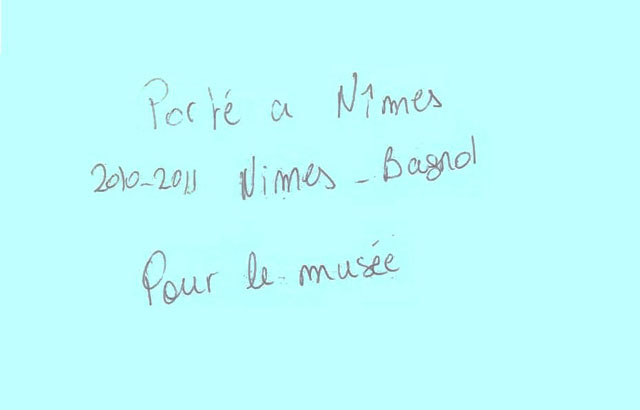 Porté a Nîmes
2010-2011 Nimes - Bagnol
Pour le musée